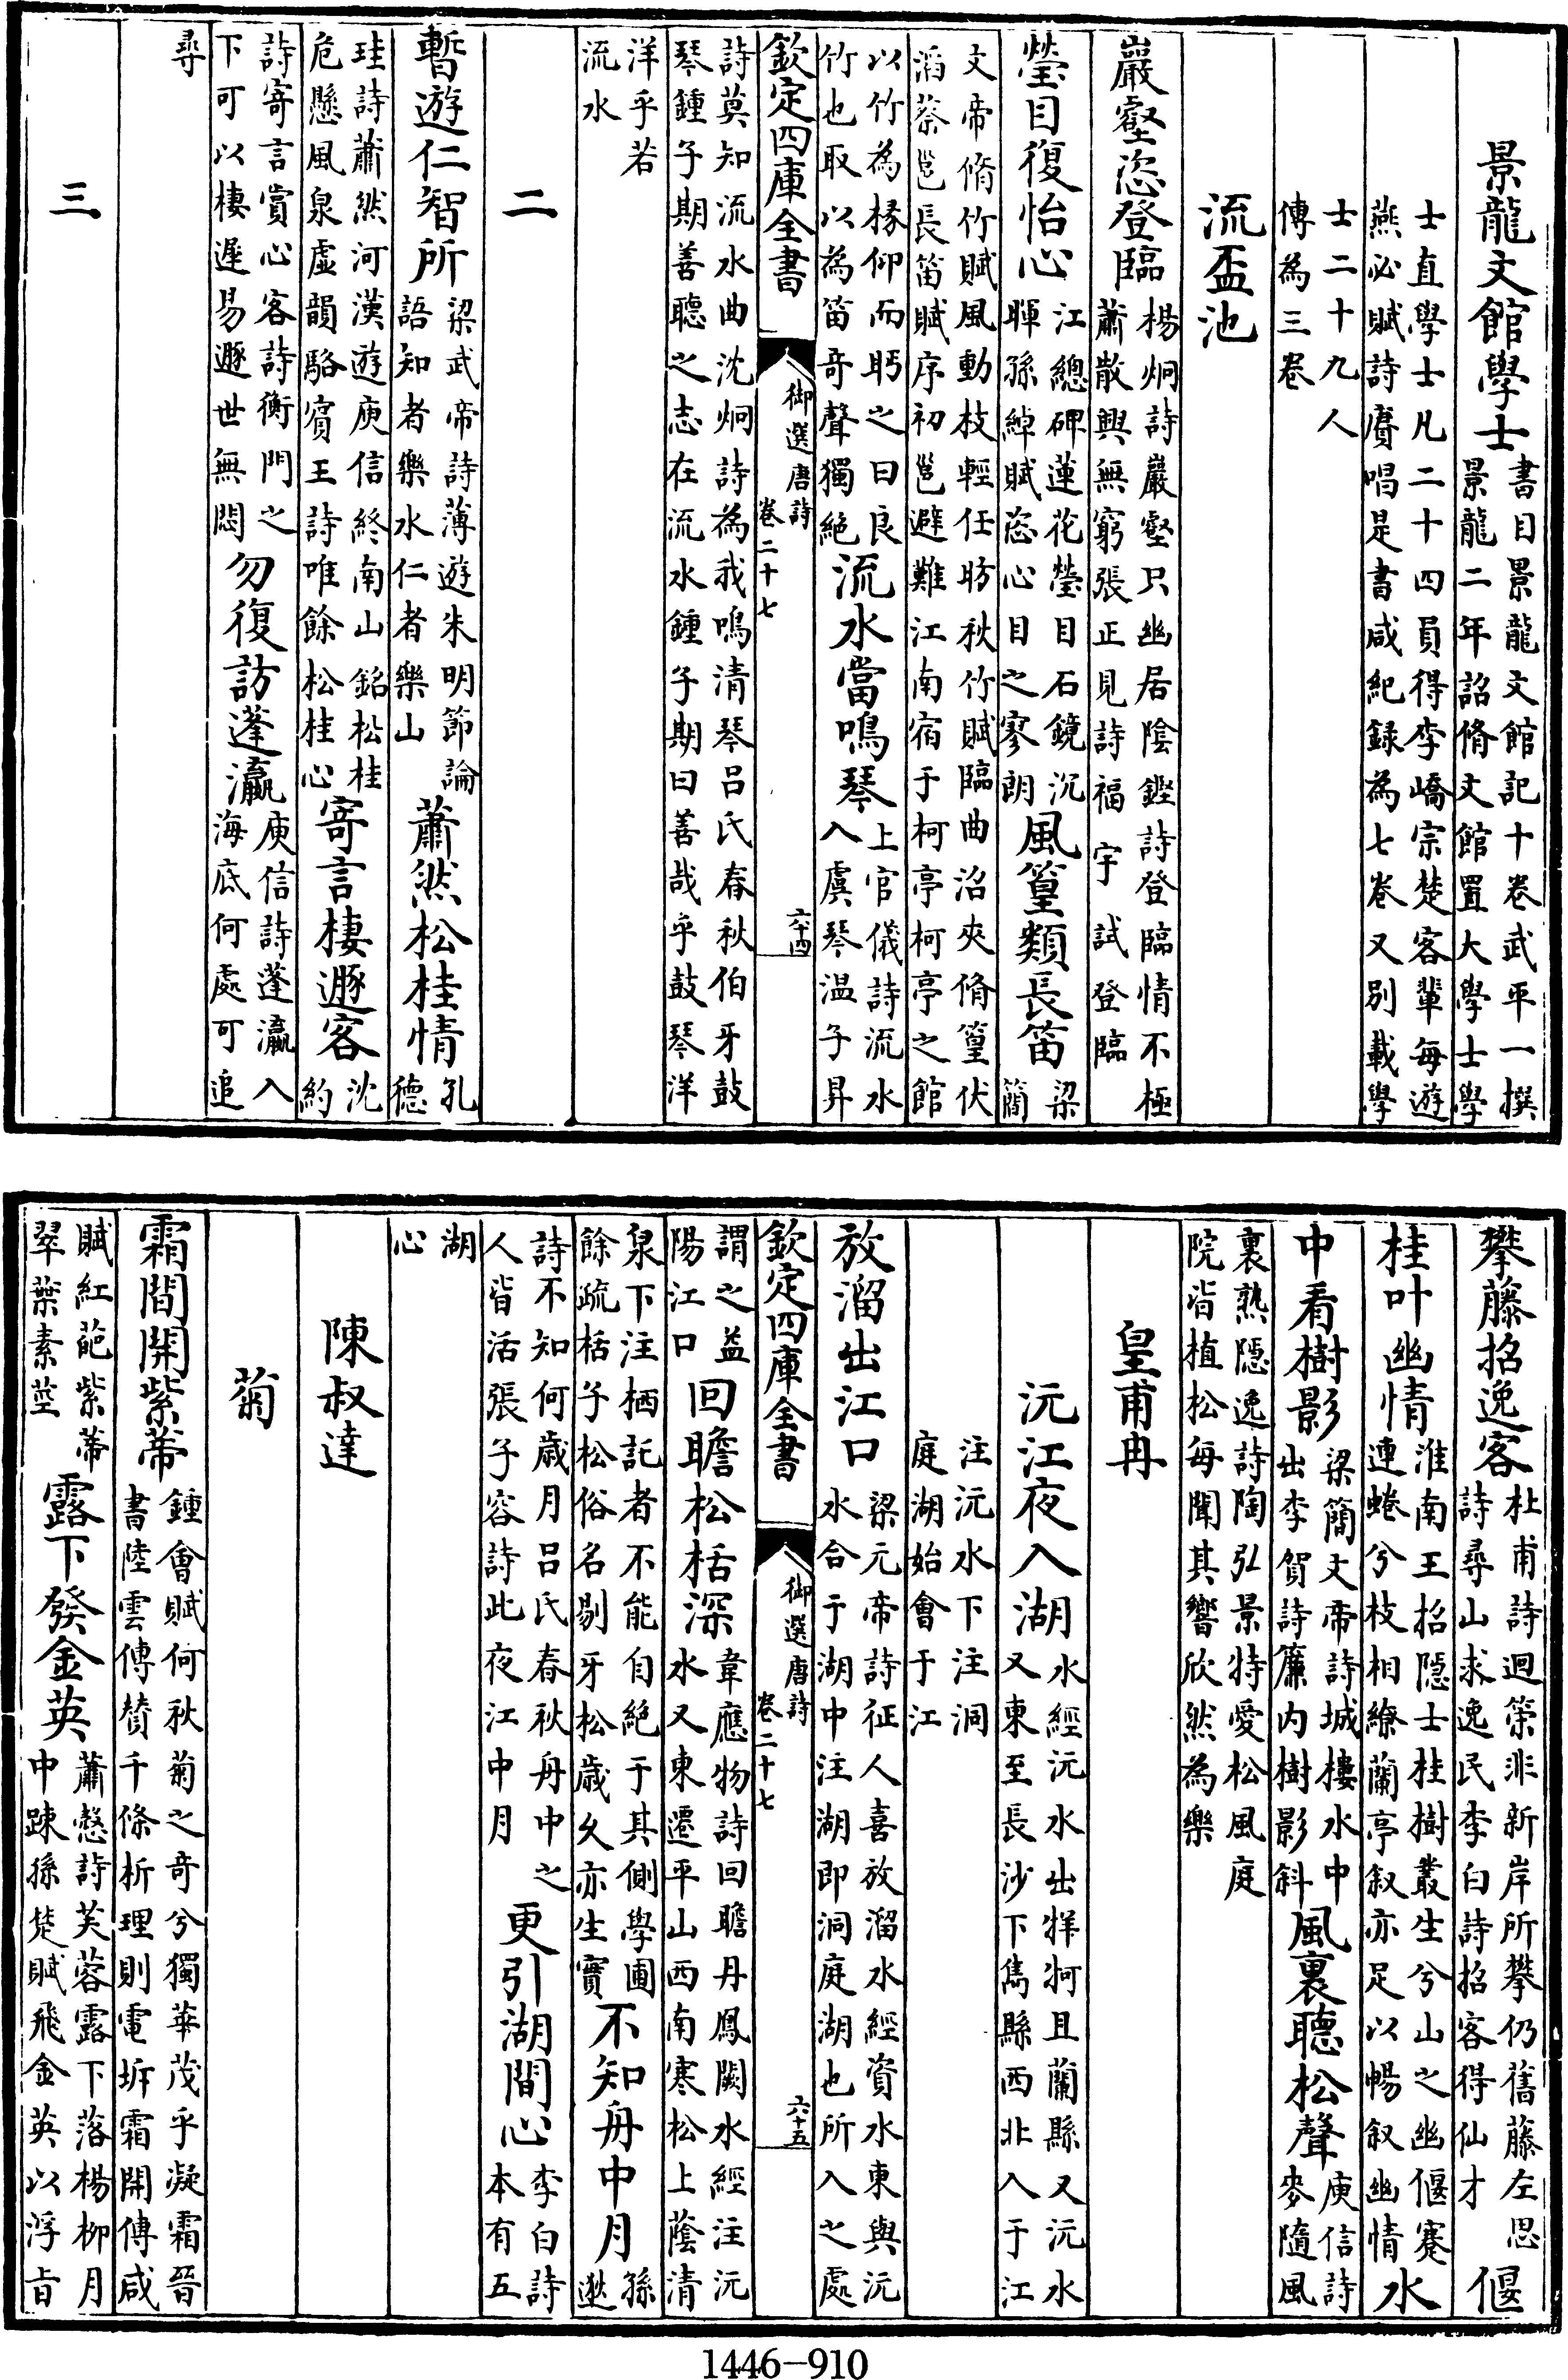 景龍文館學士書目景龍文館記十卷武平一撰景龍二年詔脩文館置大學士學
士直學士凡二十四員得李嶠宗楚客輩每遊燕必賦詩賡唱是書咸紀録為七卷又別載學
士二十九人傳為三卷
流盃池
巖壑恣登臨楊炯詩巖壑只幽居陰鏗詩登臨情不極蕭散興無窮張正見詩福宇試登臨
瑩目復怡心江總碑蓮花瑩目石鏡沉暉孫綽賦恣心目之寥朗風篁類長笛梁簡
文帝脩竹賦風動枝輕任昉秋竹賦臨曲沼夾脩篁伏滔蔡邕長笛賦序初邕避難江南宿于柯亭柯亭之館
以竹為椽仰而眄之曰良竹也取以為笛奇聲獨絶流水當鳴琴上官儀詩流水入虞琴温子昇
欽定四庫全書 御選唐詩 卷二十七 六十四
詩莫知流水曲沈炯詩為我鳴清琴吕氏春秋伯牙鼓琴鍾子期善聽之志在流水鍾子期曰善哉乎鼓琴洋
洋乎若流水
二
暫遊仁智所梁武帝詩薄遊朱明節論語知者樂水仁者樂山蕭然松桂情孔德
珪詩蕭然河漢遊庾信終南山銘松桂危懸風泉虛韻駱賓王詩唯餘松桂心寄言棲遯客沈約
詩寄言賞心客詩衡門之下可以棲遲易遯世無悶勿復訪蓬瀛庾信詩蓬瀛入海底何處可追
尋
三
攀藤招逸客杜甫詩迴策非新岸所攀仍舊藤左思詩尋山求逸民李白詩招客得仙才偃
桂叶幽情淮南王招隠士桂樹叢生兮山之幽偃蹇連蜷兮枝相繚蘭亭叙亦足以暢叙幽情水
中看樹影梁簡文帝詩城樓水中出李賀詩簾内樹影斜風裏聽松聲庾信詩麥隨風
裏熟隠逸詩陶弘景特愛松風庭院皆植松每聞其響欣然為樂
皇甫冉
沅江夜入湖水經沅水出牂牁且蘭縣又沅水又東至長沙下雋縣西北入于江
注沅水下注洞庭湖始會于江
放溜出江口梁元帝詩征人喜放溜水經資水東與沅水合于湖中注湖即洞庭湖也所入之處
欽定四庫全書 御選唐詩 卷二十七 六十五
謂之益陽江口回瞻松栝深韋應物詩回瞻丹鳳闕水經注沅水又東遷平山西南寒松上蔭清
泉下注栖託者不能自絶于其側學圃餘疏栝子松俗名剔牙松歳久亦生實不知舟中月孫逖
詩不知何歳月吕氏春秋舟中之人皆活張子容詩此夜江中月更引湖間心李白詩本有五
湖心
陳叔達
菊
霜間開紫蔕鍾會賦何秋菊之奇兮獨華茂乎凝霜晉書陸雲傳贊千條析理則電坼霜開傅咸
賦紅葩紫蔕翠葉素莖露下發金英蕭慤詩芙蓉露下落楊柳月中踈孫楚賦飛金英以浮旨
1446-910